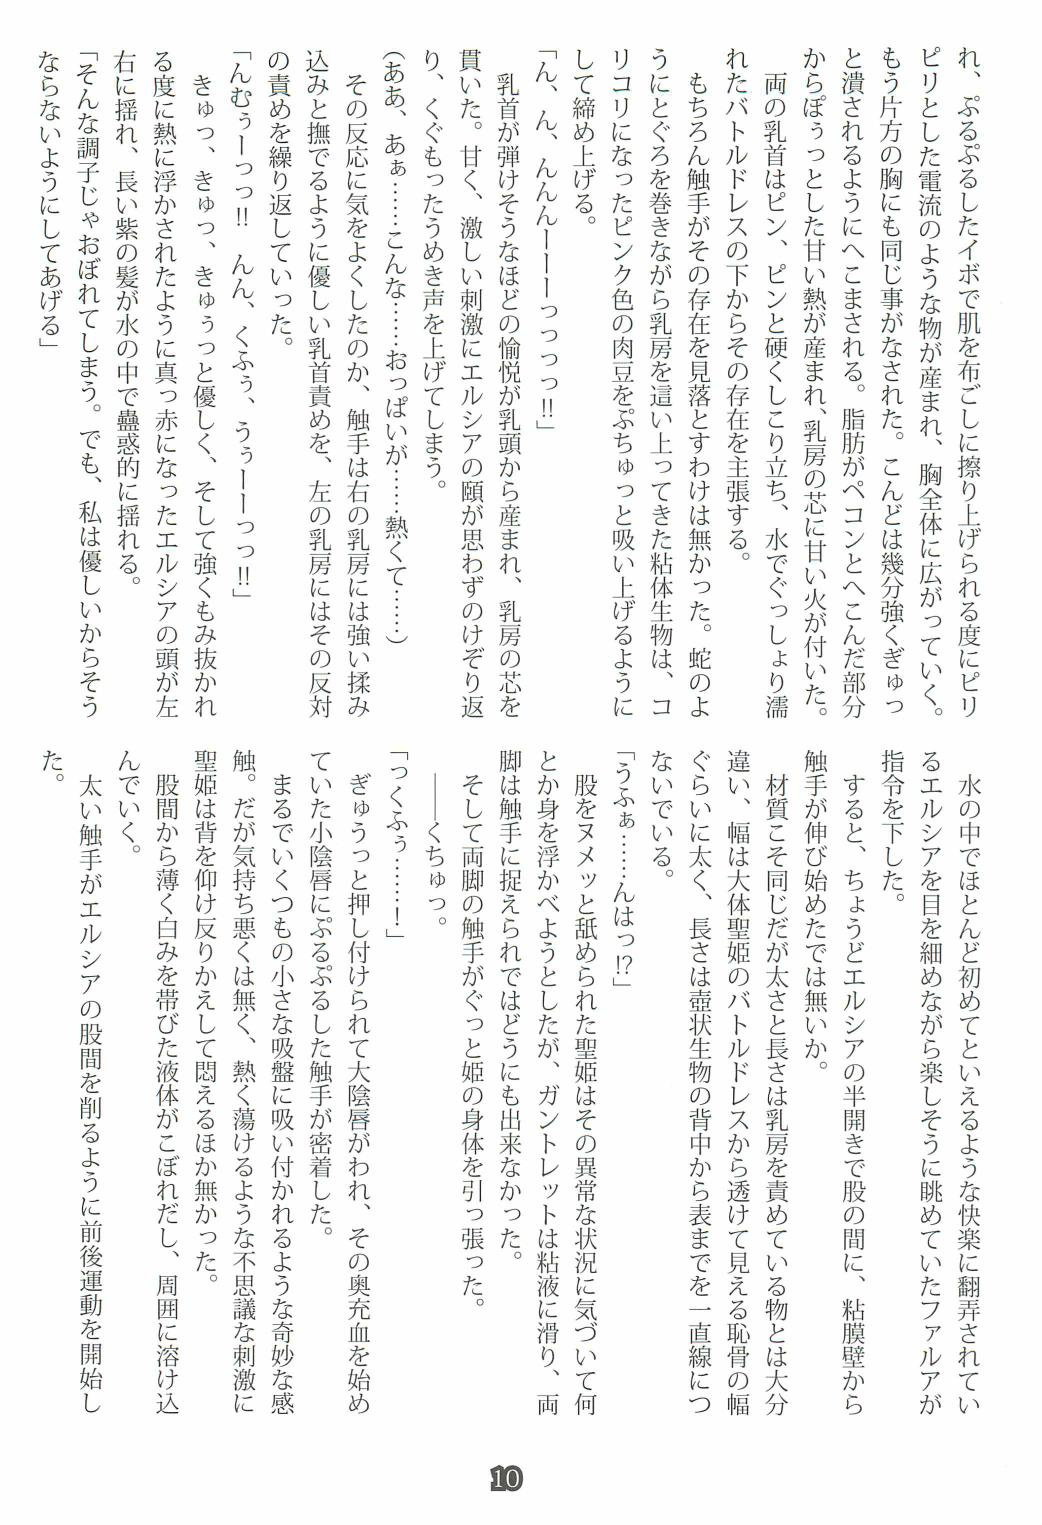 れ、ぷるぷるしたイボで肌を布ごしに擦り上げられる度にピリ
ピリとした電流のような物が産まれ、胸全体に広がっていく。
もう片方の胸にも同じ事がなされた。こんどは幾分強くぎゅっ
と潰されるようにへこまされる。脂肪がペコンとへこんだ部分
からぽぅっとした甘い熱が産まれ、乳房の芯に甘い火が付いた。
　両の乳首はピン、ピンと硬くしこり立ち、水でぐっしょり濡
れたバトルドレスの下からその存在を主張する。
　もちろん触手がその存在を見落とすわけは無かった。蛇のよ
うにとぐろを巻きながら乳房を這い上ってきた粘体生物は、コ
リコリになったピンク色の肉豆をぷちゅっと吸い上げるように
して締め上げる。
「ん、ん、んんんーーーっっっっ!!」
　乳首が弾けそうなほどの愉悦が乳頭から産まれ、乳房の芯を
貫いた。甘く、激しい刺激にエルシアの頤が思わずのけぞり返
り、くぐもったうめき声を上げてしまう。
(ああ、あぁ……こんな……おっぱいが……熱くて……)
　その反応に気をよくしたのか、触手は右の乳房には強い揉み
込みと撫でるように優しい乳首責めを、左の乳房にはその反対
の責めを繰り返していった。
「んむぅーっっ!!　んん、くふぅ、うぅーーっっ!!」
　きゅっ、きゅっ、きゅぅっと優しく、そして強くもみ抜かれ
る度に熱に浮かされたように真っ赤になったエルシアの頭が左
右に揺れ、長い紫の髪が水の中で蠱惑的に揺れる。
「そんな調子じゃおぼれてしまう。でも、私は優しいからそう
ならないようにしてあげる」
　水の中でほとんど初めてといえるような快楽に翻弄されてい
るエルシアを目を細めながら楽しそうに眺めていたファルアが
指令を下した。
　すると、ちょうどエルシアの半開きで股の間に、粘膜壁から
触手が伸び始めたでは無いか。
　材質こそ同じだが太さと長さは乳房を責めている物とは大分
違い、幅は大体聖姫のバトルドレスから透けて見える恥骨の幅
ぐらいに太く、長さは壺状生物の背中から表までを一直線につ
ないでいる。
「うふぁ……んはっ!?」
　股をヌメッと舐められた聖姫はその異常な状況に気づいて何
とか身を浮かべようとしたが、ガントレットは粘液に滑り、両
脚は触手に捉えられではどうにも出来なかった。
　そして両脚の触手がぐっと姫の身体を引っ張った。
　――くちゅっ。
「っくふぅ……！」
　ぎゅうっと押し付けられて大陰唇がわれ、その奥充血を始め
ていた小陰唇にぷるぷるした触手が密着した。
　まるでいくつもの小さな吸盤に吸い付かれるような奇妙な感
触。だが気持ち悪くは無く、熱く蕩けるような不思議な刺激に
聖姫は背を仰け反りかえして悶えるほか無かった。
　股間から薄く白みを帯びた液体がこぼれだし、周囲に溶け込
んでいく。
　太い触手がエルシアの股間を削るように前後運動を開始し
た。
10